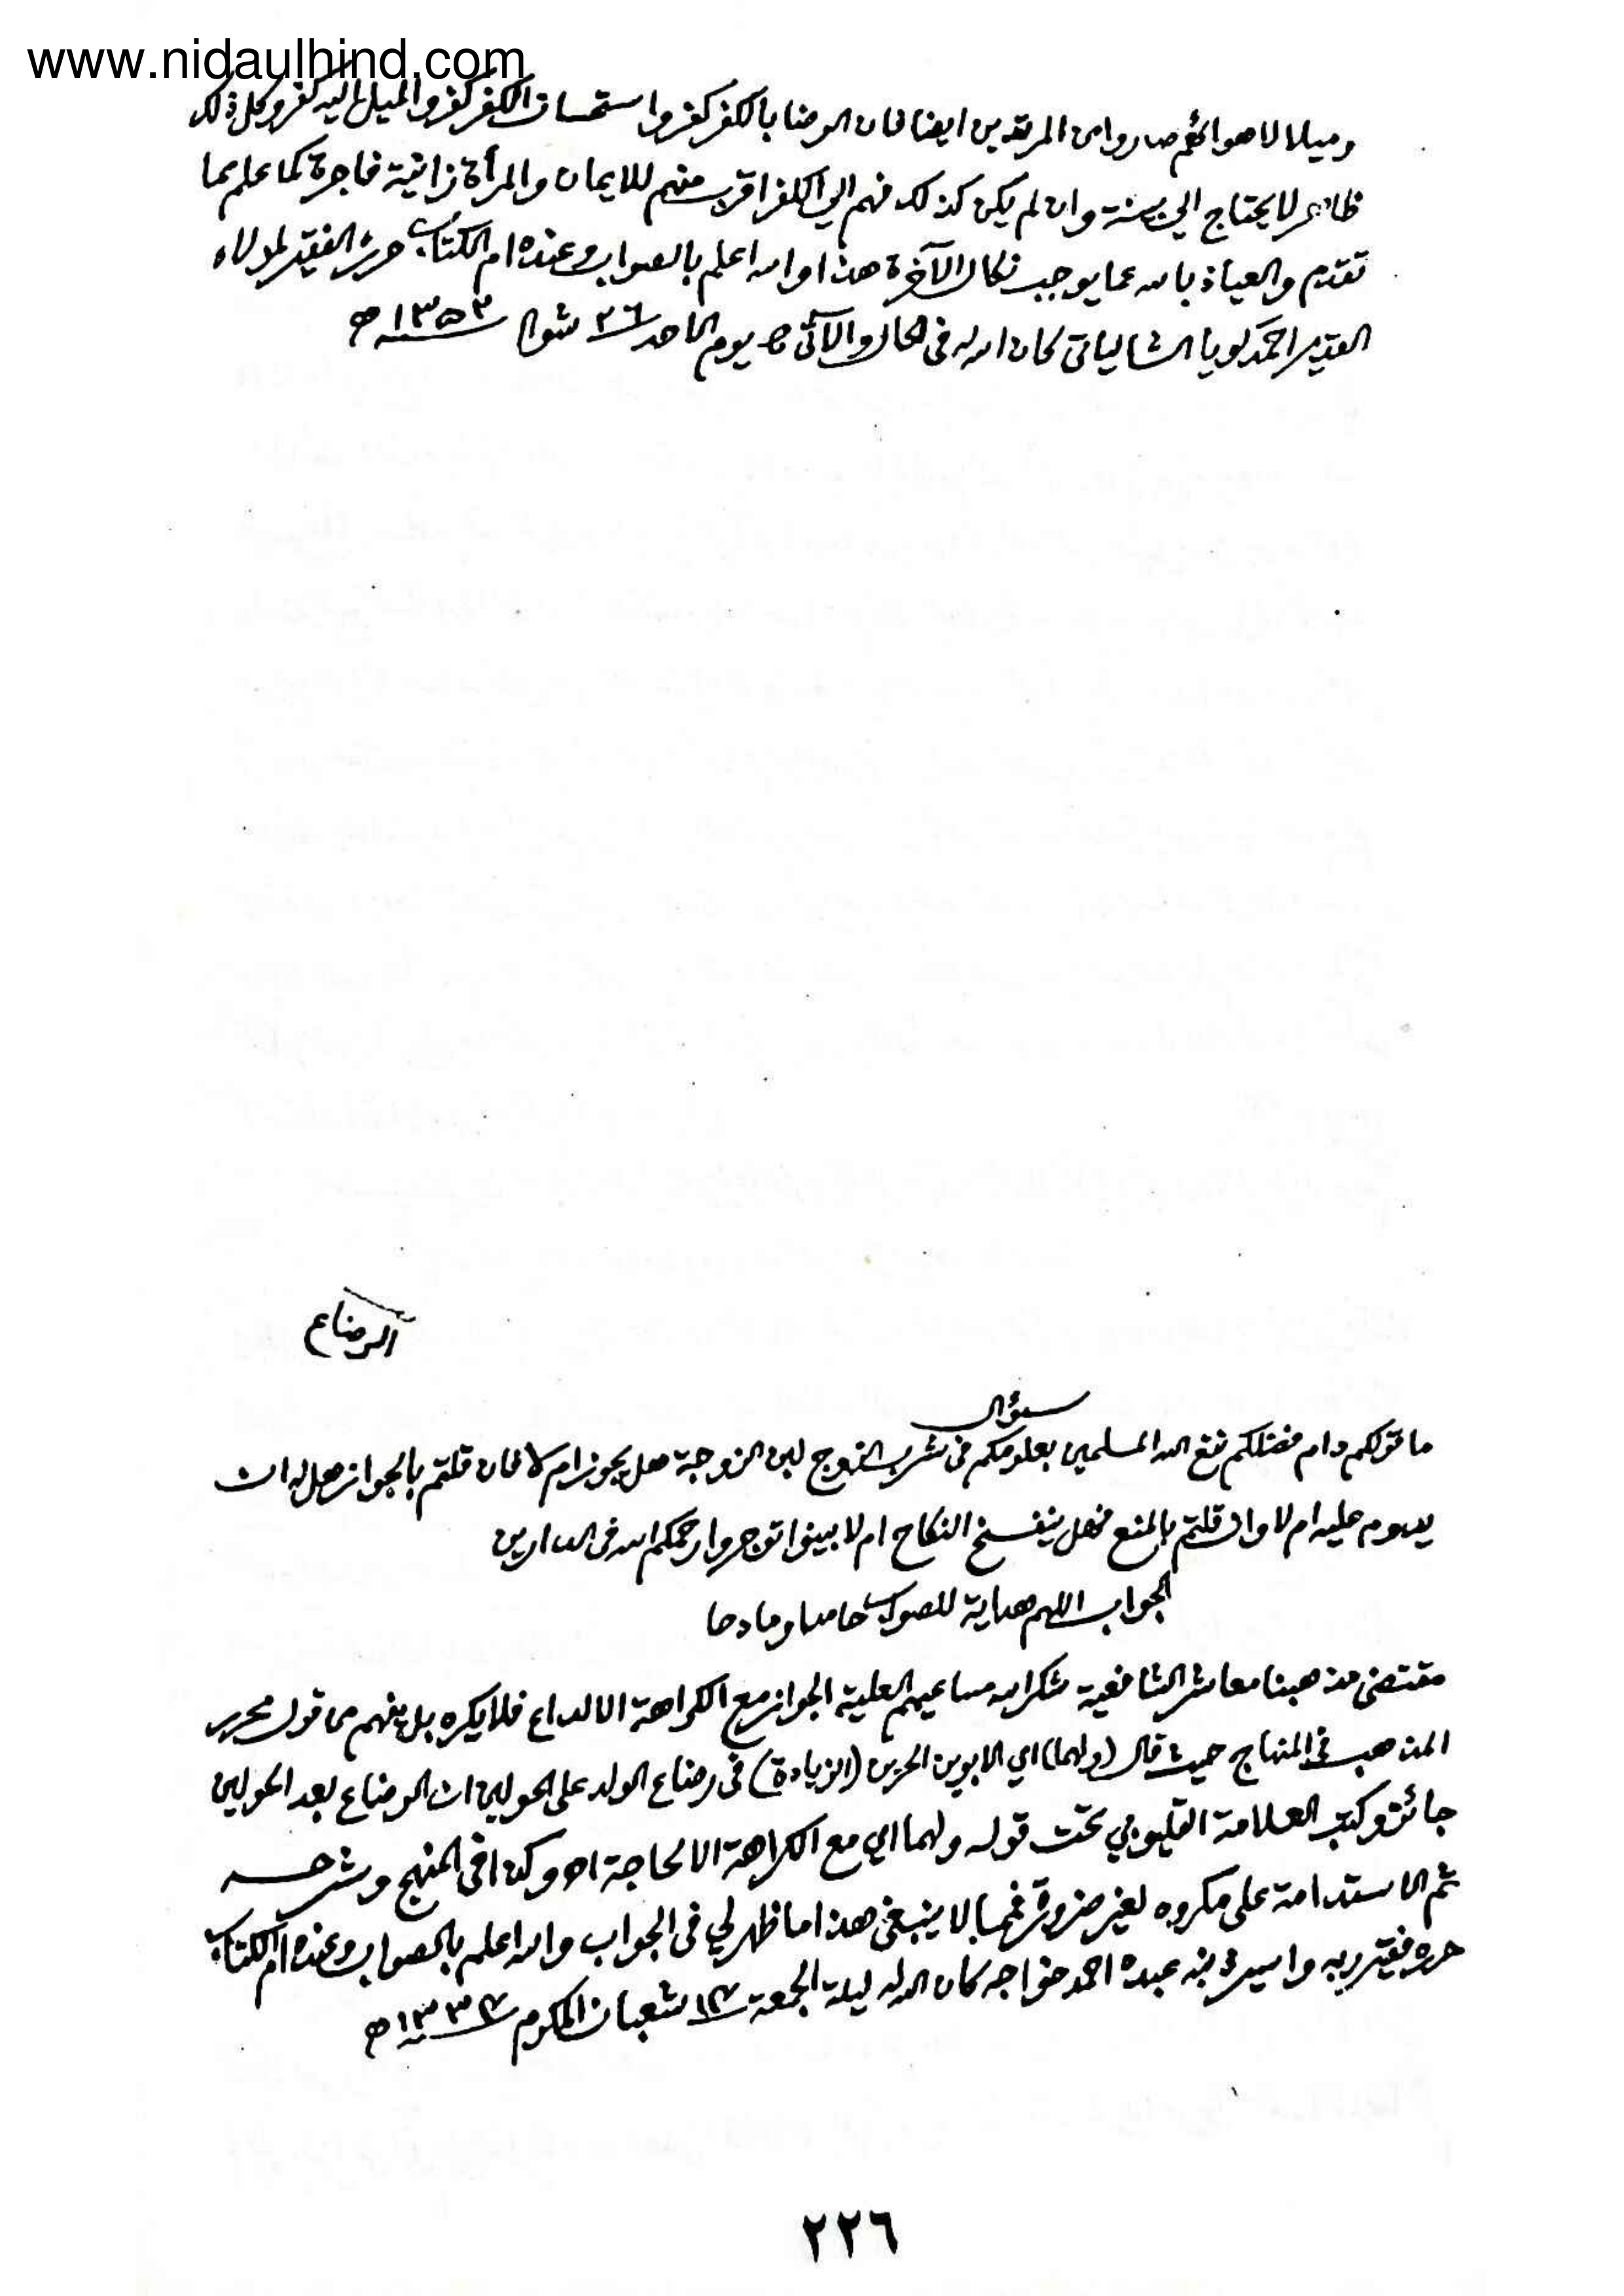 www.nidaulhind.com
وميلا لاهوائهم صاروا من المرتدين ايضا فان الرضا بالكفر كفر واستحسان الكفر كفر والميل اليه كفر وكل ذلك
ظاهر لا يحتاج الى بينة وان لم يكن كذلك فهم الى الكفر اقرب منهم للايمان والمرأة زانية فاجرة كما علم مما
تقدم والعياذ بالله عما يوجب نكال الآخرة هذا والله اعلم بالصواب وعنده ام الكتاب حرره الفقير لمولاه
القدير احمد كويا الشالياتي كان الله له في الحال والآتي ه يوم الاحد ٢٦ شوال ١٣٥٣ ه
الرضاع
سؤال
ما قولكم دام فضلكم نفع الله المسلمين بعلومكم في شرب الزوج لبن الزوجة هل يجوز ام لا فان قلتم بالجواز هل له ان
يدوم عليه ام لا وان قلتم بالمنع فهل ينفسخ النكاح ام لا بينوا توجروا رحمكم الله في الدارين
الجواب اللهم هداية للصواب حامدا ومادحا
مقتضى مذهبنا معاشر الشافعية شكر الله مساعيهم العلية الجواز مع الكراهة الا لداع فلا يكره بل يفهم من قول محرر
المذهب في المنهاج حيث قال (ولهما) اي الابوين الحرين (الزيادة) في رضاع الولد على الحولين ان الرضاع بعد الحولين
جائز وكتب العلامة القليوبي تحت قوله ولهما اي مع الكراهة الا لحاجة اه وكذا في المنهج وشرحه
ثم الاستدامة على مكروه لغير ضرورة فمما لا ينبغي هذا ما ظهر لي في الجواب والله اعلم بالصواب وعنده ام الكتاب
حرره فقير ربه واسير ذنبه عبده احمد خواجه كان الله له ليلة الجمعة ١٤ شعبان المكرم ١٣٣٤ ه
٢٢٦